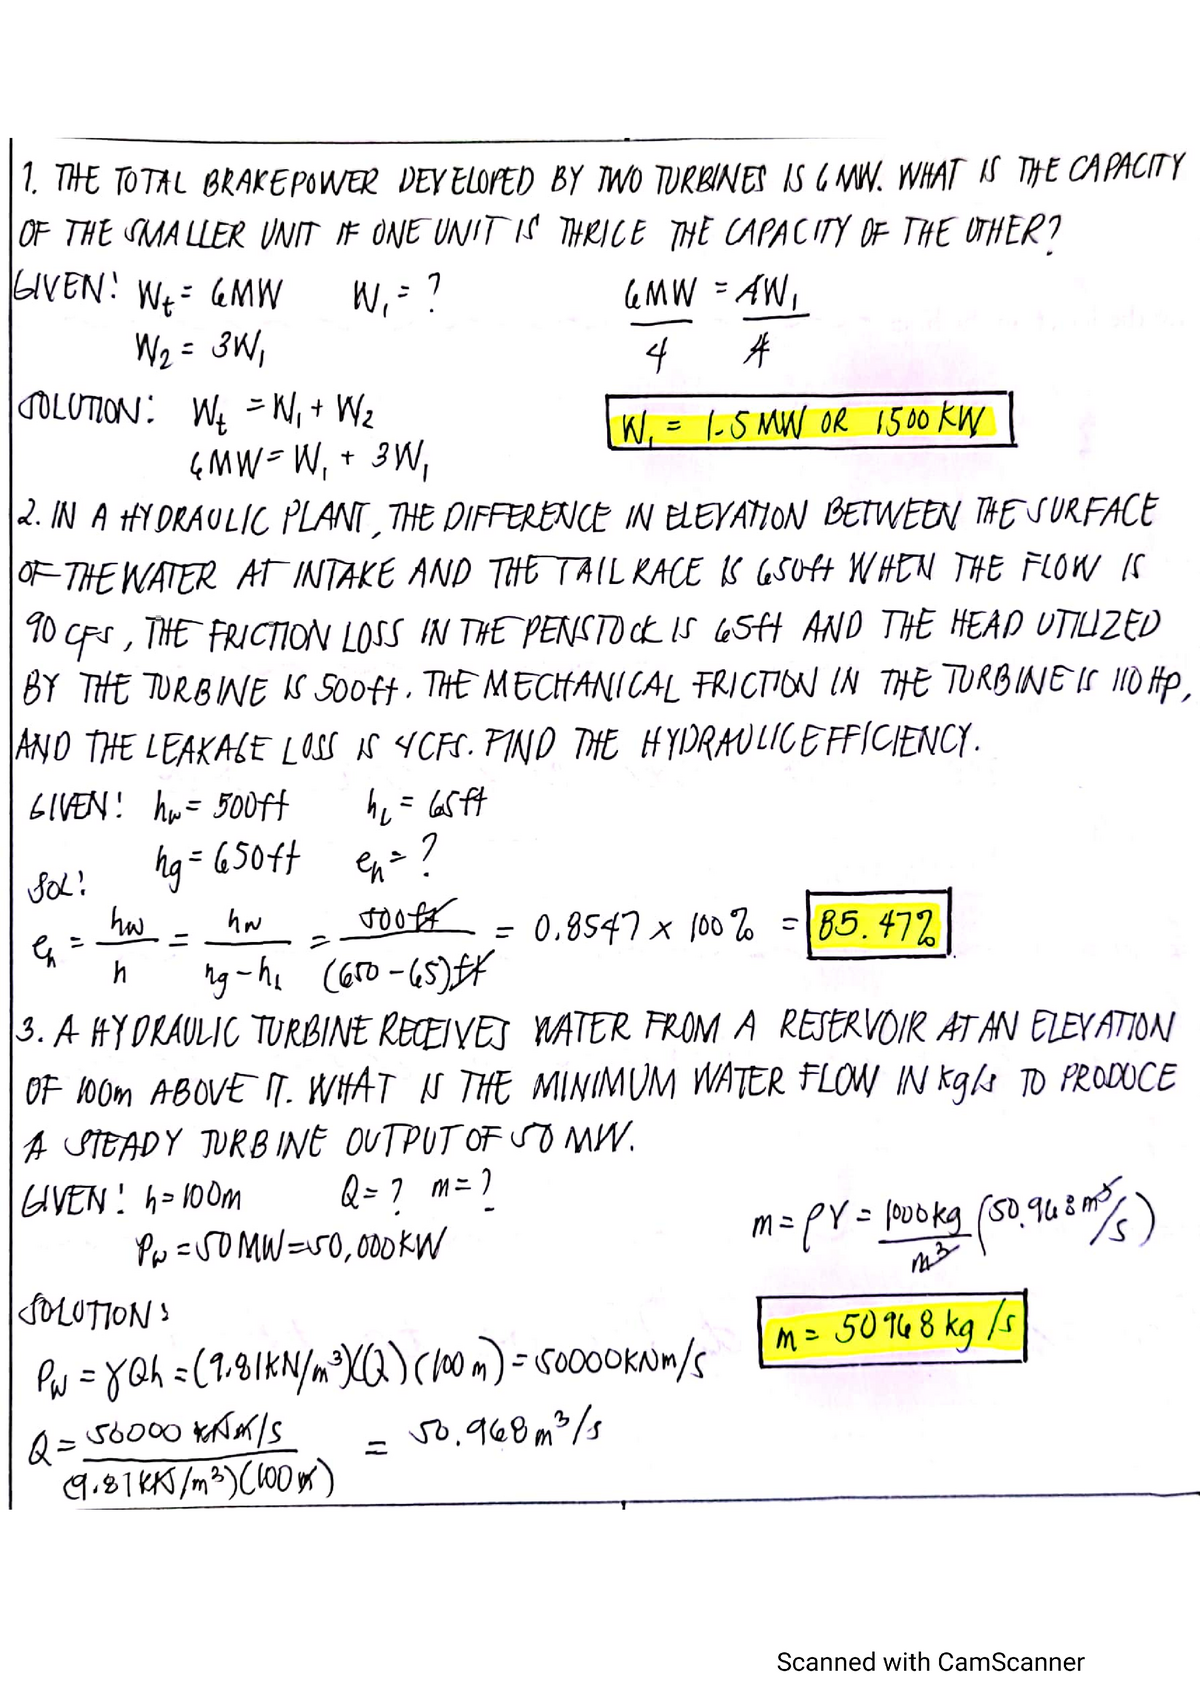 1. THE TOTAL BRAKEPOWER DEVELOPED BY TWO TURBINES IS 6 MW. WHAT IS THE CAPACITY
OF THE SMALLER UNIT IF ONE UNIT IS THRICE THE CAPACITY OF THE OTHER?
GIVEN: Wt = 6MW W1 = ? 6MW = 4W1
W2 = 3W1 4 4
SOLUTION: Wt = W1 + W2
W1 = 1.5 MW OR 1500 KW
6MW = W1 + 3W1
2. IN A HYDRAULIC PLANT, THE DIFFERENCE IN ELEVATION BETWEEN THE SURFACE
OF THE WATER AT INTAKE AND THE TAILRACE IS 650ft WHEN THE FLOW IS
90 CFS, THE FRICTION LOSS IN THE PENSTOCK IS 65ft AND THE HEAD UTILIZED
BY THE TURBINE IS 500ft. THE MECHANICAL FRICTION IN THE TURBINE IS 110 Hp,
AND THE LEAKAGE LOSS IS 4CFS. FIND THE HYDRAULIC EFFICIENCY.
GIVEN: hw = 500ft hL = 65ft
hg = 650ft eh = ?
SOL:
eh = hw / h = hw / hg - hL = 500ft / (650 - 65)ft = 0.8547 x 100% = 85.47%
3. A HYDRAULIC TURBINE RECEIVES WATER FROM A RESERVOIR AT AN ELEVATION
OF 100m ABOVE IT. WHAT IS THE MINIMUM WATER FLOW IN kg/s TO PRODUCE
A STEADY TURBINE OUTPUT OF 50 MW.
GIVEN: h = 100m Q = ? m = ?
m = ρV = 1000kg / m³ (50.968 m³/s)
Pw = 50 MW = 50,000KW
SOLUTION:
m = 50968 kg/s
Pw = γQh = (9.81KN/m³)(Q)(100m) = 50000KNm/s
Q = 50000 KNm/s / (9.81KN/m³)(100m) = 50.968m³/s
Scanned with CamScanner